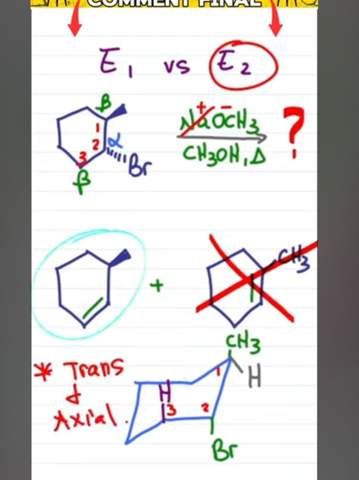 COMMENT FINAL
E1 vs E2
β
1
α
2
3
Br
β
Na+ -OCH3
CH3OH, Δ
?
+
CH3
* Trans
&
Axial
CH3
1
H
H
3
2
Br